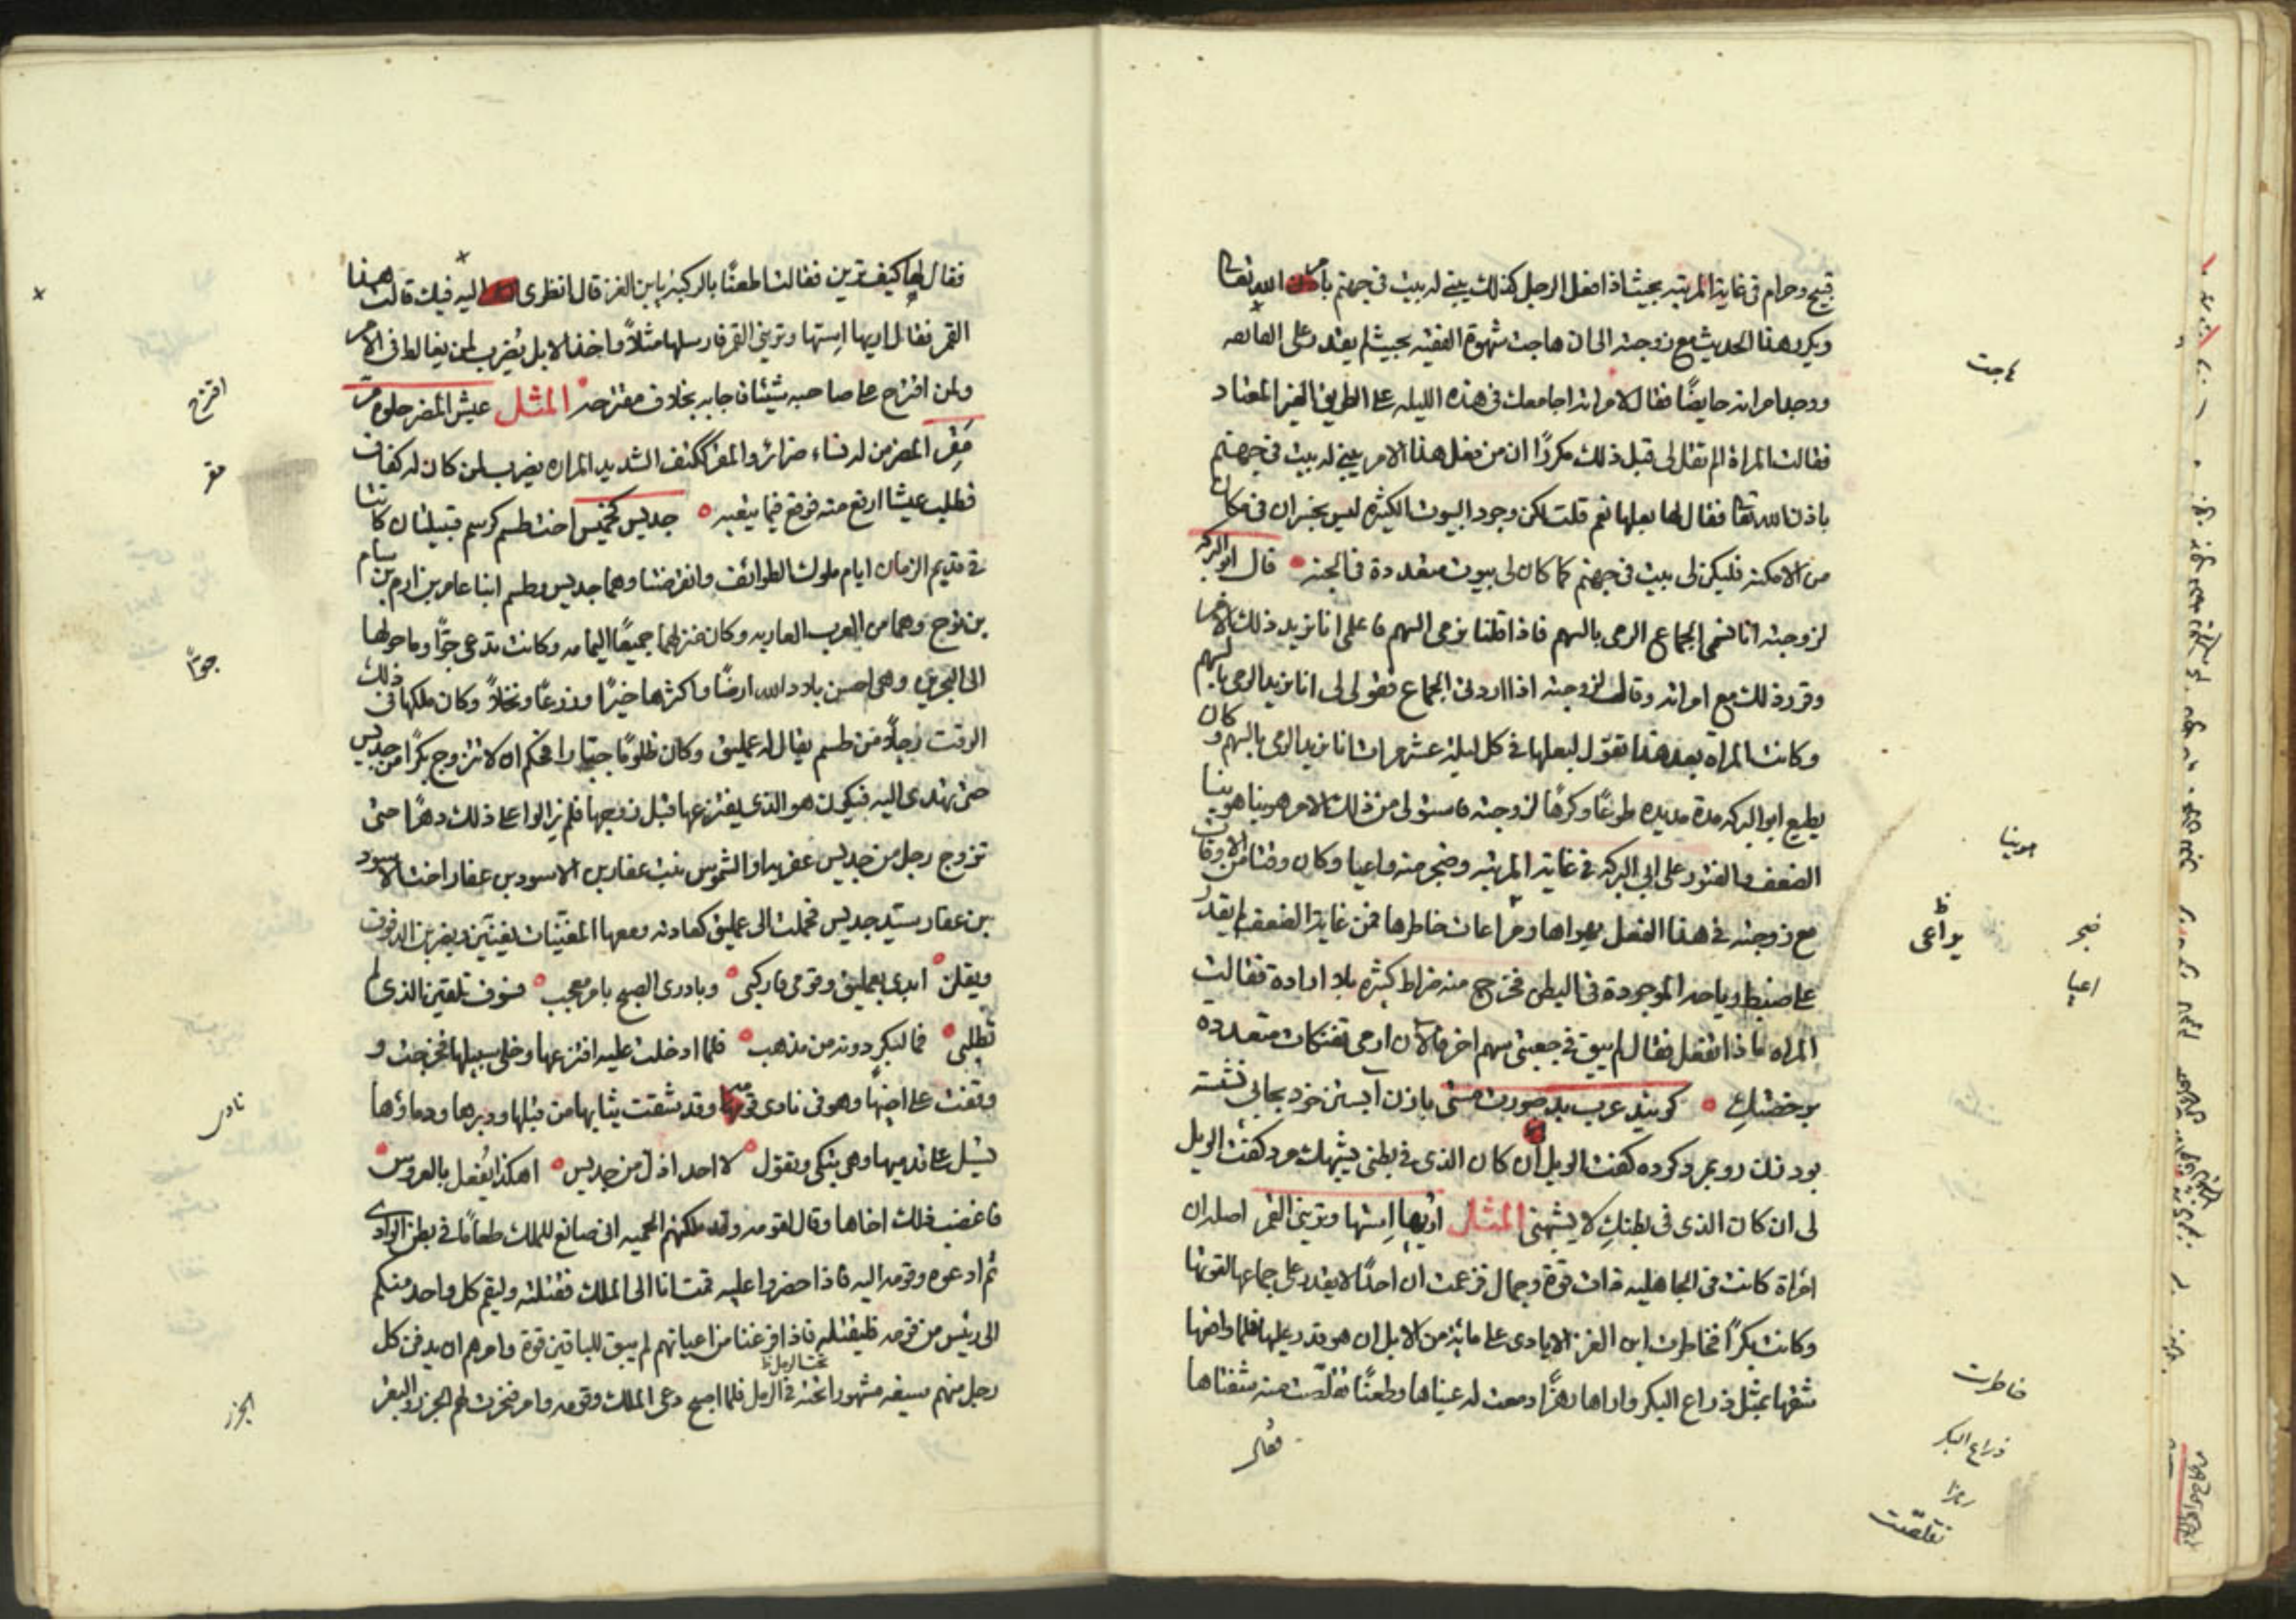 قبيح وحرام في غاية المرتبه بحيث اذا فعل الرجل كذلك يبنى له بيت في جهنم بامر الله تعالى
ويكرر هذا الحديث مع زوجته الى ان هاجت شهوة الفقيه بحيث لم يقدر على
ووجد امراته حايضًا فقال لامراته اجامعك في هذه الليله على الطريق الغير المعتاد
فقالت المراة الم تقل لى قبل ذلك مكررًا ان من فعل هذا الامر يبنى له بيت في جهنم
باذن الله تعا فقال لها بعلها نعم قلت لكن وجود البيوت الكثيره ليس بخسران في مكان
من الامكنة فليكن لى بيت في جهنم كما كان لى بيوت متعددة في الجنه قال ابو البركه
لزوجته انا نسمى الجماع الرمى بالسهم فاذا قلنا نرمى السهم فاعلمى انا نريد ذلك الامر
وقرر ذلك مع امراته وقال لزوجته اذا اردت الجماع فقولى لى انا نريد الرمى بالسهم
وكانت المراه بعد هذا تقول لبعلها في كل ليلة عشر مرات انا نريد الرمى بالسهم وكان
يطيع ابو البركه مدة مديده طوعًا وكرهًا لزوجته فاستولى من ذلك الامر هوينا هوينا
الضعف والفتور على ابي البركه في غاية المرتبه وضجر منه واعيا وكان وقتا من الاوقات
مع زوجته في هذا الفعل بهواها ومراعات خاطرها فمن غاية الضعف لم يقدر
على ضبط رياحه الموجودة في البطن فخرج منه ضراط كثيره بلا ارادة فقالت
المراه ماذا تفعل فقال لم يبق في جعبتى سهم اخر فالآن ارمى تفنكات متعدده
گويند عرب بد صورت مستى با زن آبستن خود بجايى نشسته
بود زن رو بمرد كرده گفت الويل ان كان الذى في بطنى يشبهك مرد گفت الويل
لى ان كان الذى في بطنكِ لا يشبهنى المثل اريها اِستها وترينى القمر اصله ان
امراة كانت في الجاهليه ذات قوة وجمال فزعمت ان احدًا لا يقدر على جماعها لقوتها
وكانت بكرًا فخاطرت ابن الغز الايادى على مائة من الابل ان هو قدر عليها فلما واقعها
شقها بمثل ذراع البكر واراها رهزًا دمعت له عيناها وطعنًا تقلّصت منه شفتاها
فقال
هاجت
هوينا
يراعى
ضجر
اعيا
خاطرت
ذراع البكر
رهزا
تقلصت
فقال لها كيف ترين فقالت طعنًا بالركبة يابن الغز قال انظرى اليه فيك قالت هذا
القمر فقال اريها اِستها وترينى القمر فارسلها مثلاً واخذ الابل يُضرب لمن يغالط في الامر
ولمن اقترح على صاحبه شيئًا فاجابه بخلاف مقترحه المثل عيش المضر حلوه مرّ
مَقِر المضر من له نساء ضرائر والمقر ككتف الشديد المراره يضرب لمن كان له كفاف
فطلب عيشا ارفع منه فوقع فيما يتعبه جديس كخميس اخت طسم كرسم قبيلتان كانتا
في قديم الزمان ايام ملوك الطوائف وانقرضتا وهما جديس وطسم ابنا عامر بن ارم بن سام
بن نوح وهما من العرب العاربه وكان منزلهما جميعًا اليمامه وكانت تدعى جوّا وما حولها
الى البحرين وهى احسن بلاد الله ارضًا واكثرها خيرًا وزرعًا ونخلاً وكان ملكها في ذلك
الوقت رجلاً من طسم يقال له عمليق وكان ظلومًا جبّارا فحكم ان لا تتزوج بكرًا من جديس
حتى تهدى اليه فيكون هو الذى يفترعها قبل زوجها فلم يزالوا على ذلك دهرًا حتى
تزوج رجل من جديس عفيره او الشموس بنت عفار بن الاسود بن عفار اخت الاسود
بن عفار سيّد جديس فحملت الى عمليق كعادته ومعها المغنّيات يغنّين ويضربن الدفوف
ويقلن ابدى بعمليق وقومى فاركبى وبادرى الصبح بامر معجب فسوف تلقين الذى لم
تطلبى فما لبكر دونه من مذهب فلما ادخلت عليه افترعها وخلى سبيلها فخرجت و
وقفت على اخيها وهو في نادى قومه وقد شقت ثيابها من قبلها ودبرها ودماؤها
تسيل على قدميها وهى تبكى وتقول لا احد اذل من جديس اهكذا يُفعل بالعروس
فاغضب ذلك اخاها وقال لقومه انى صانع للملك طعامًا في بطن الوادى
ثم ادعوه وقومه اليه فاذا حضروا عليه قمت انا الى الملك فقتلته وليقم كل واحد منكم
الى رئيس من قومه فليقتله فاذا فرغنا من اعيانهم لم يبق للباقين قوة وامرهم ان يدفن كل
رجل منهم سيفه مشهورا تحته في الرمل فلما اصبح دعى الملك وقومه وامر فنحرت لهم الجزر والبقر
تحت الرمل
اقترح
مقر
جوّا
نادى
الجزر